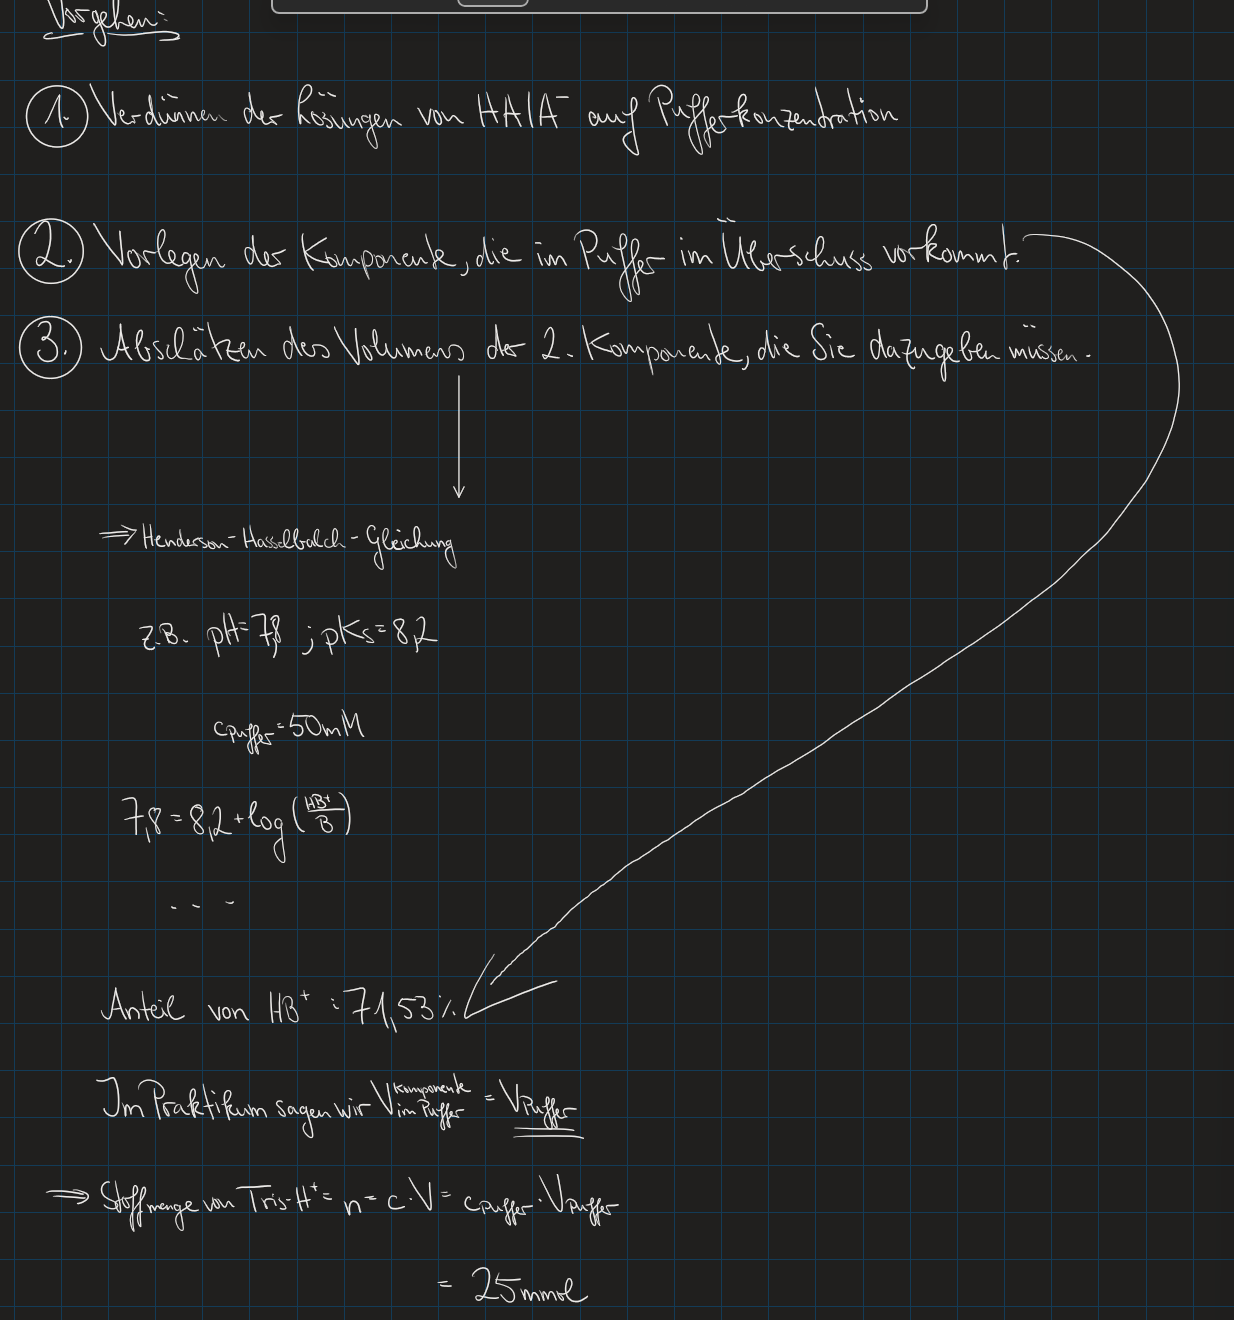 Vorgehen:
1. Verdünnen der Lösungen von HA/A⁻ auf Pufferkonzentration
2. Vorlegen der Komponente, die im Puffer im Überschuss vorkommt.
3. Abschätzen des Volumens der 2. Komponente, die Sie dazugeben müssen.
⇒ Henderson-Hasselbalch-Gleichung
z.B. pH=7,8 ; pKs=8,2
cPuffer=50mM
7,8=8,2+log(HB⁺/B)
...
Anteil von HB⁺: 71,53%
Im Praktikum sagen wir V Komponente im Puffer = VPuffer
⇒ Stoffmenge von Tris-H⁺= n= c·V= cPuffer·VPuffer
= 25mmol